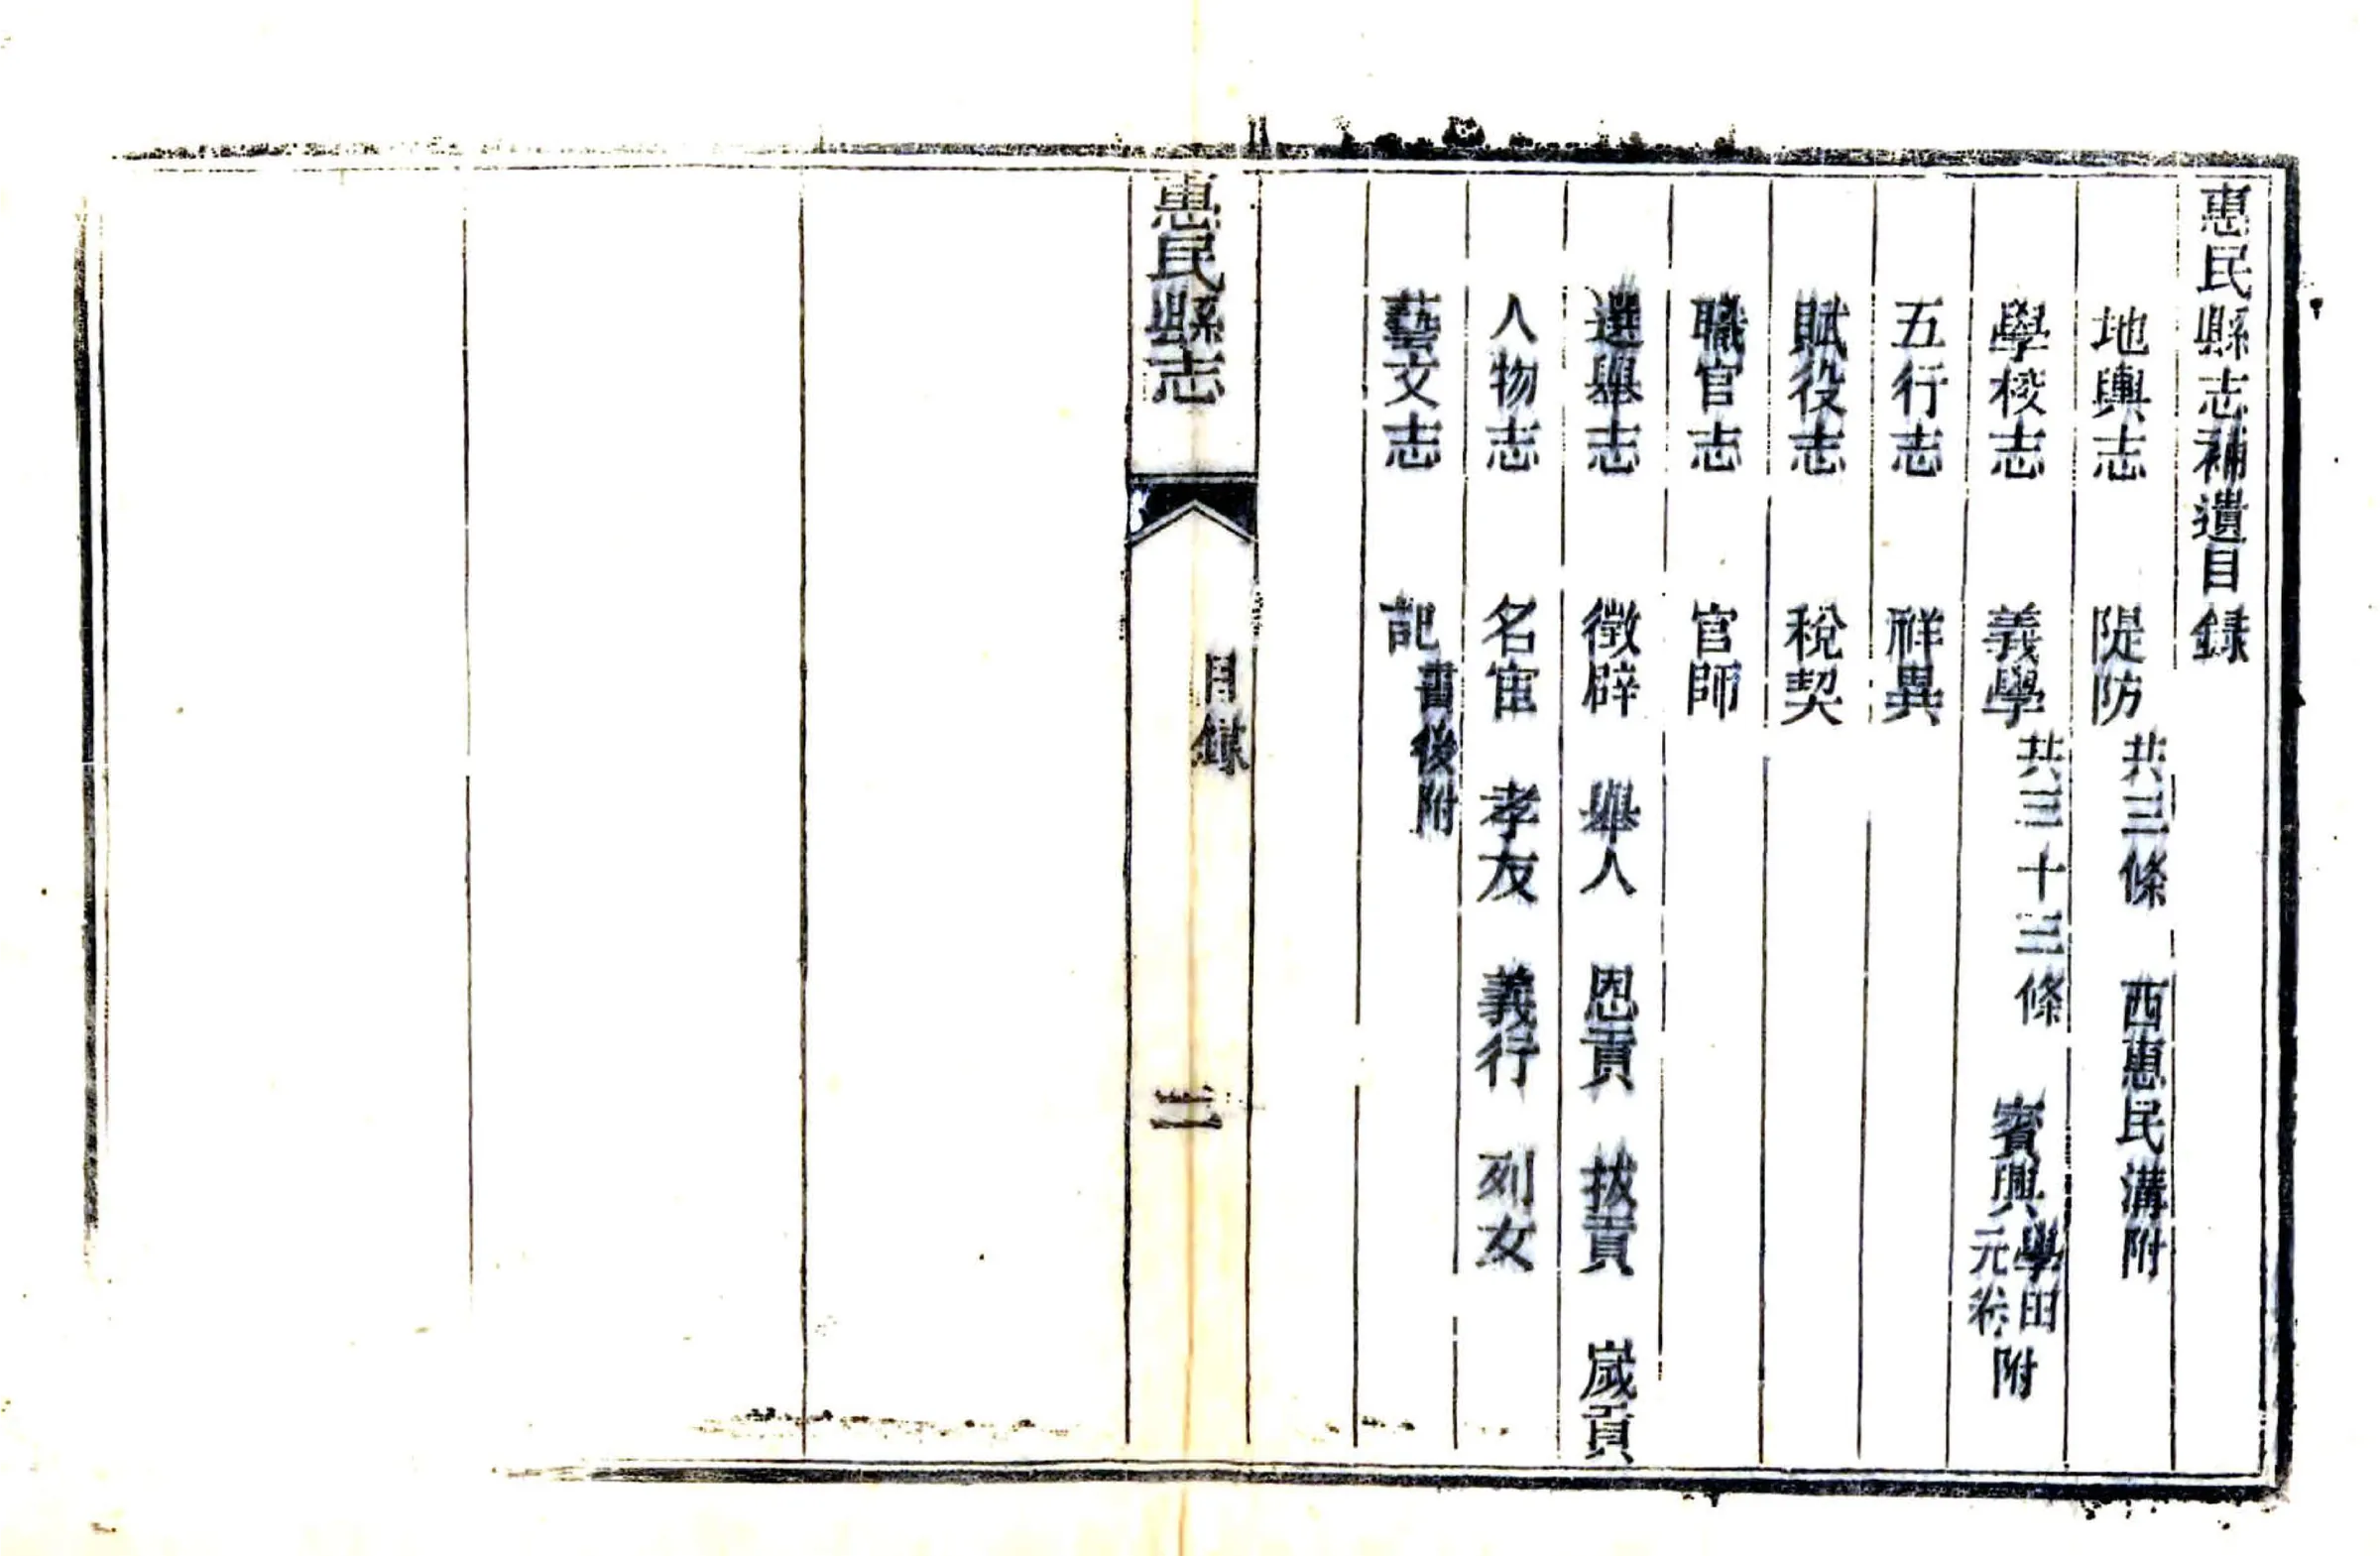 惠民縣志補遺目録
地輿志　隄防共三條　西惠民溝附
學校志　義學共三十三條　賓興學田元卷附
五行志　祥異
賦役志　稅契
職官志　官師
選舉志　徵辟　舉人　恩貢　拔貢　嵗貢
人物志　名宦　孝友　義行　列女
藝文志　記書後附
惠民縣志
目録
二